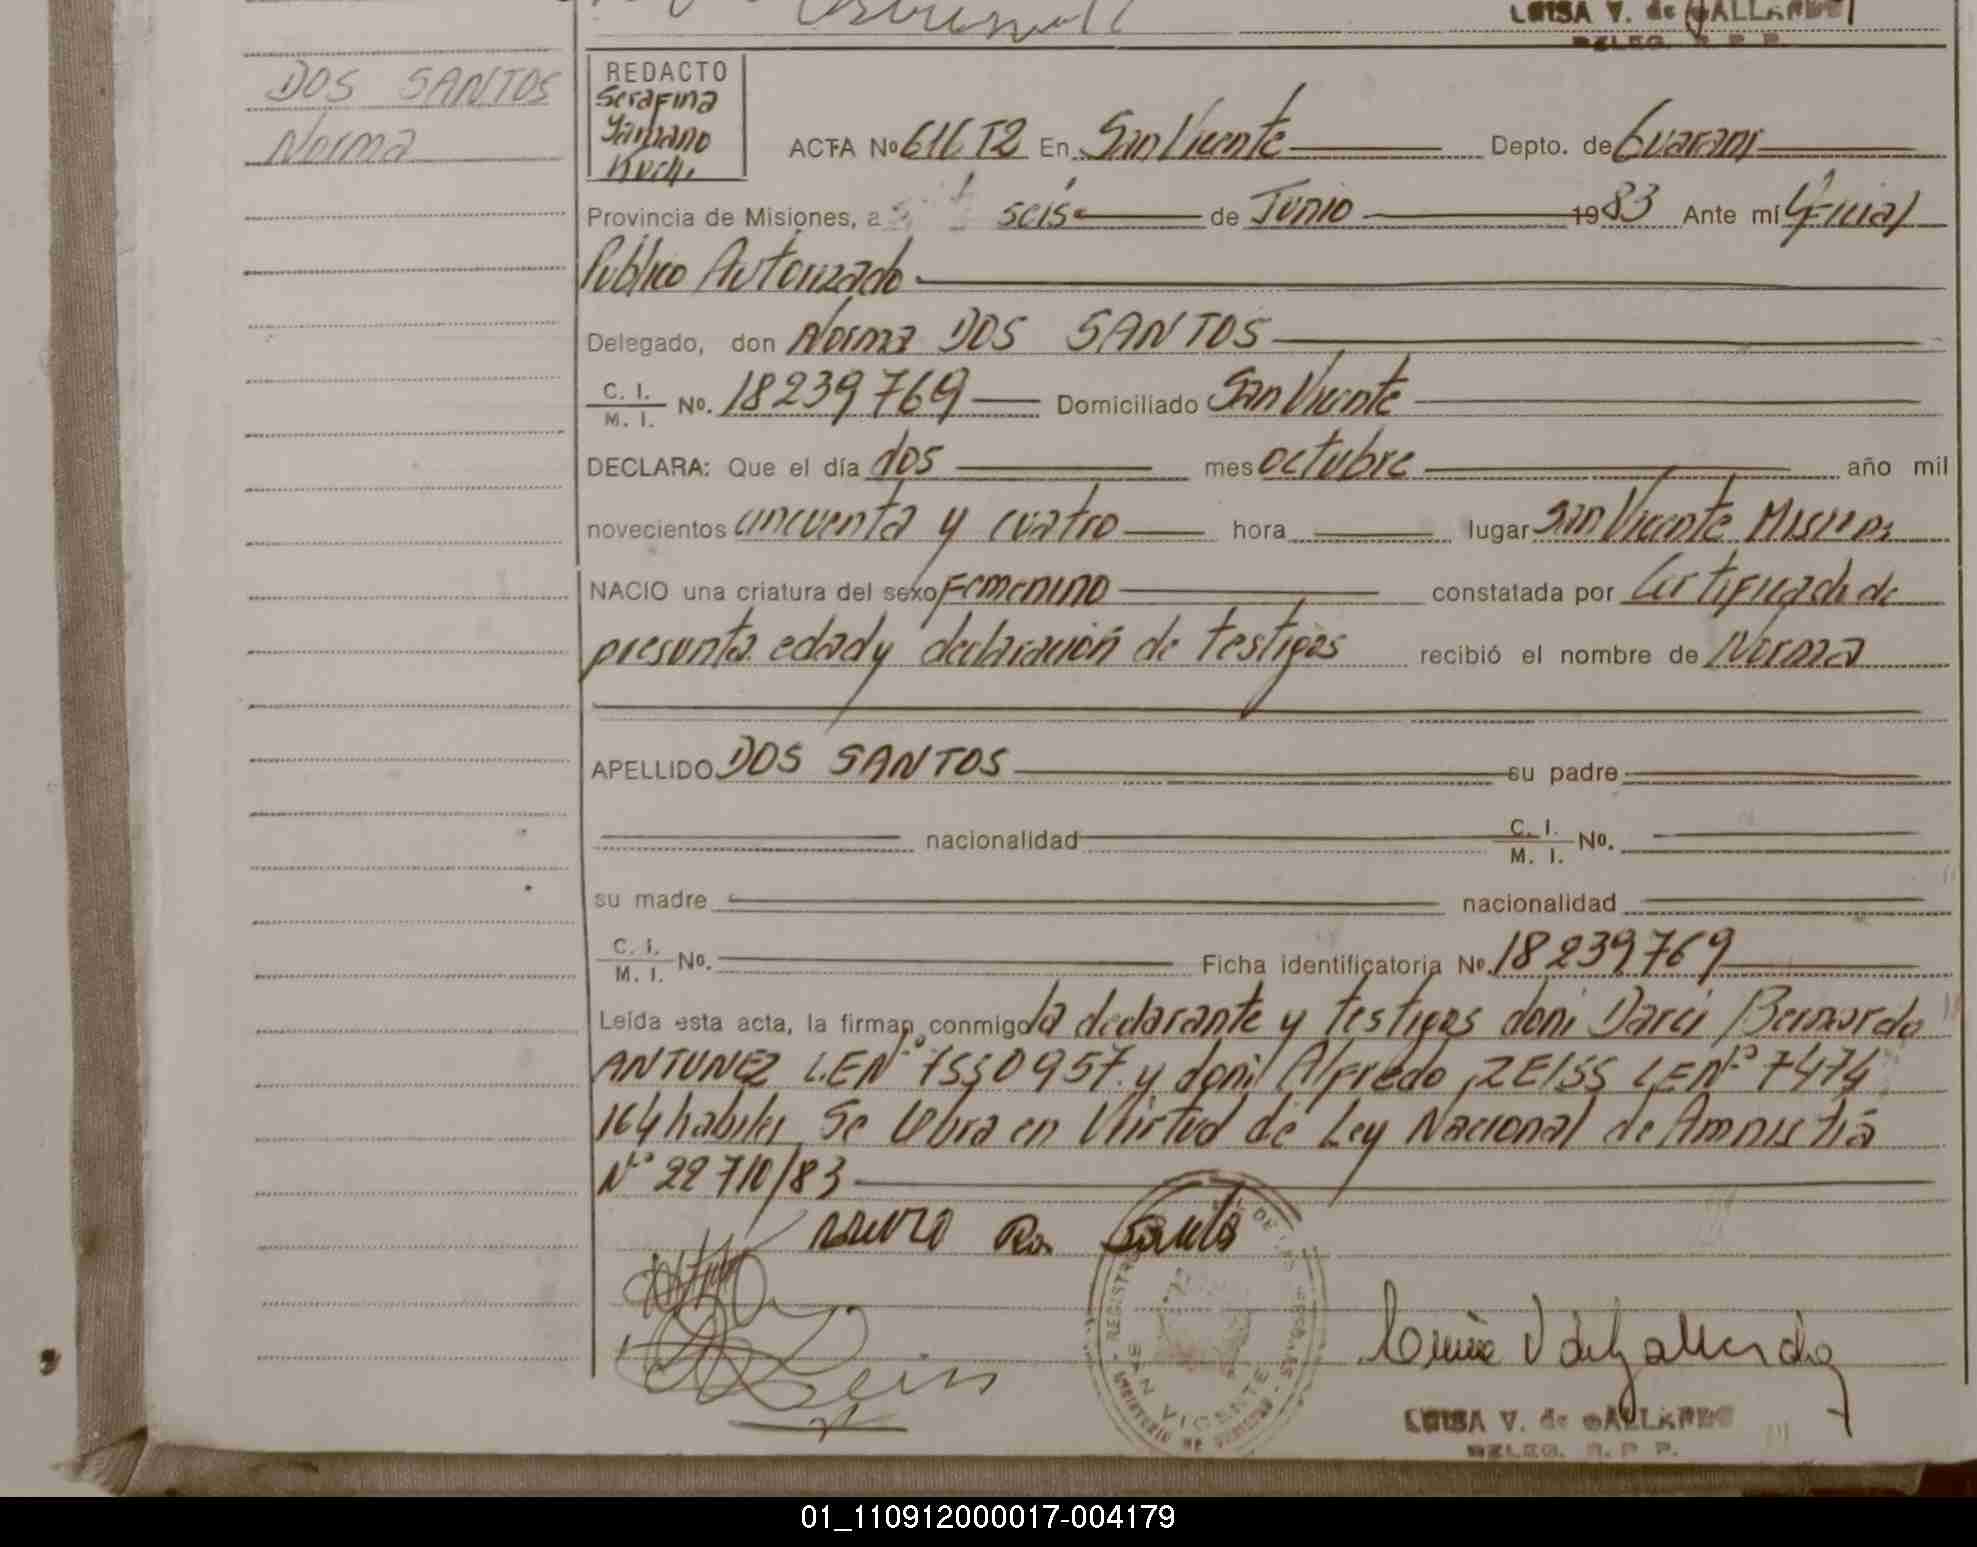 LUISA V. de GALLARDO
DELEG. R. P. P.
DOS SANTOS
Norma
REDACTO
Serafina
ACTA No 616 T2 En San Vicente Depto. de Guarani
Provincia de Misiones, a seis de Junio 1983 Ante mí Oficial
Público Autorizado
Delegado, don Norma DOS SANTOS
C. I.
M. I. No. 18239769 Domiciliado San Vicente
DECLARA: Que el día dos mes octubre año mil
novecientos cincuenta y cuatro hora lugar San Vicente Misiones
NACIO una criatura del sexo Femenino constatada por Certificado de
presunta edad y declaración de testigos recibió el nombre de Norma
APELLIDO DOS SANTOS su padre
nacionalidad C. I.
M. I. No.
su madre nacionalidad
C. I.
M. I. No. Ficha identificatoria No. 18239769
Leída esta acta, la firman conmigo la declarante y testigos don: Darci Bernardo
ANTUNEZ L.E.Nº 7550957 y don: Alfredo ZEISS L.E.Nº 7474
164 habiles Se labra en Virtud de Ley Nacional de Amnistiá
Nº 22710/83
SAN VICENTE
LUISA V. de GALLARDO
DELEG. R. P. P.
01_110912000017-004179